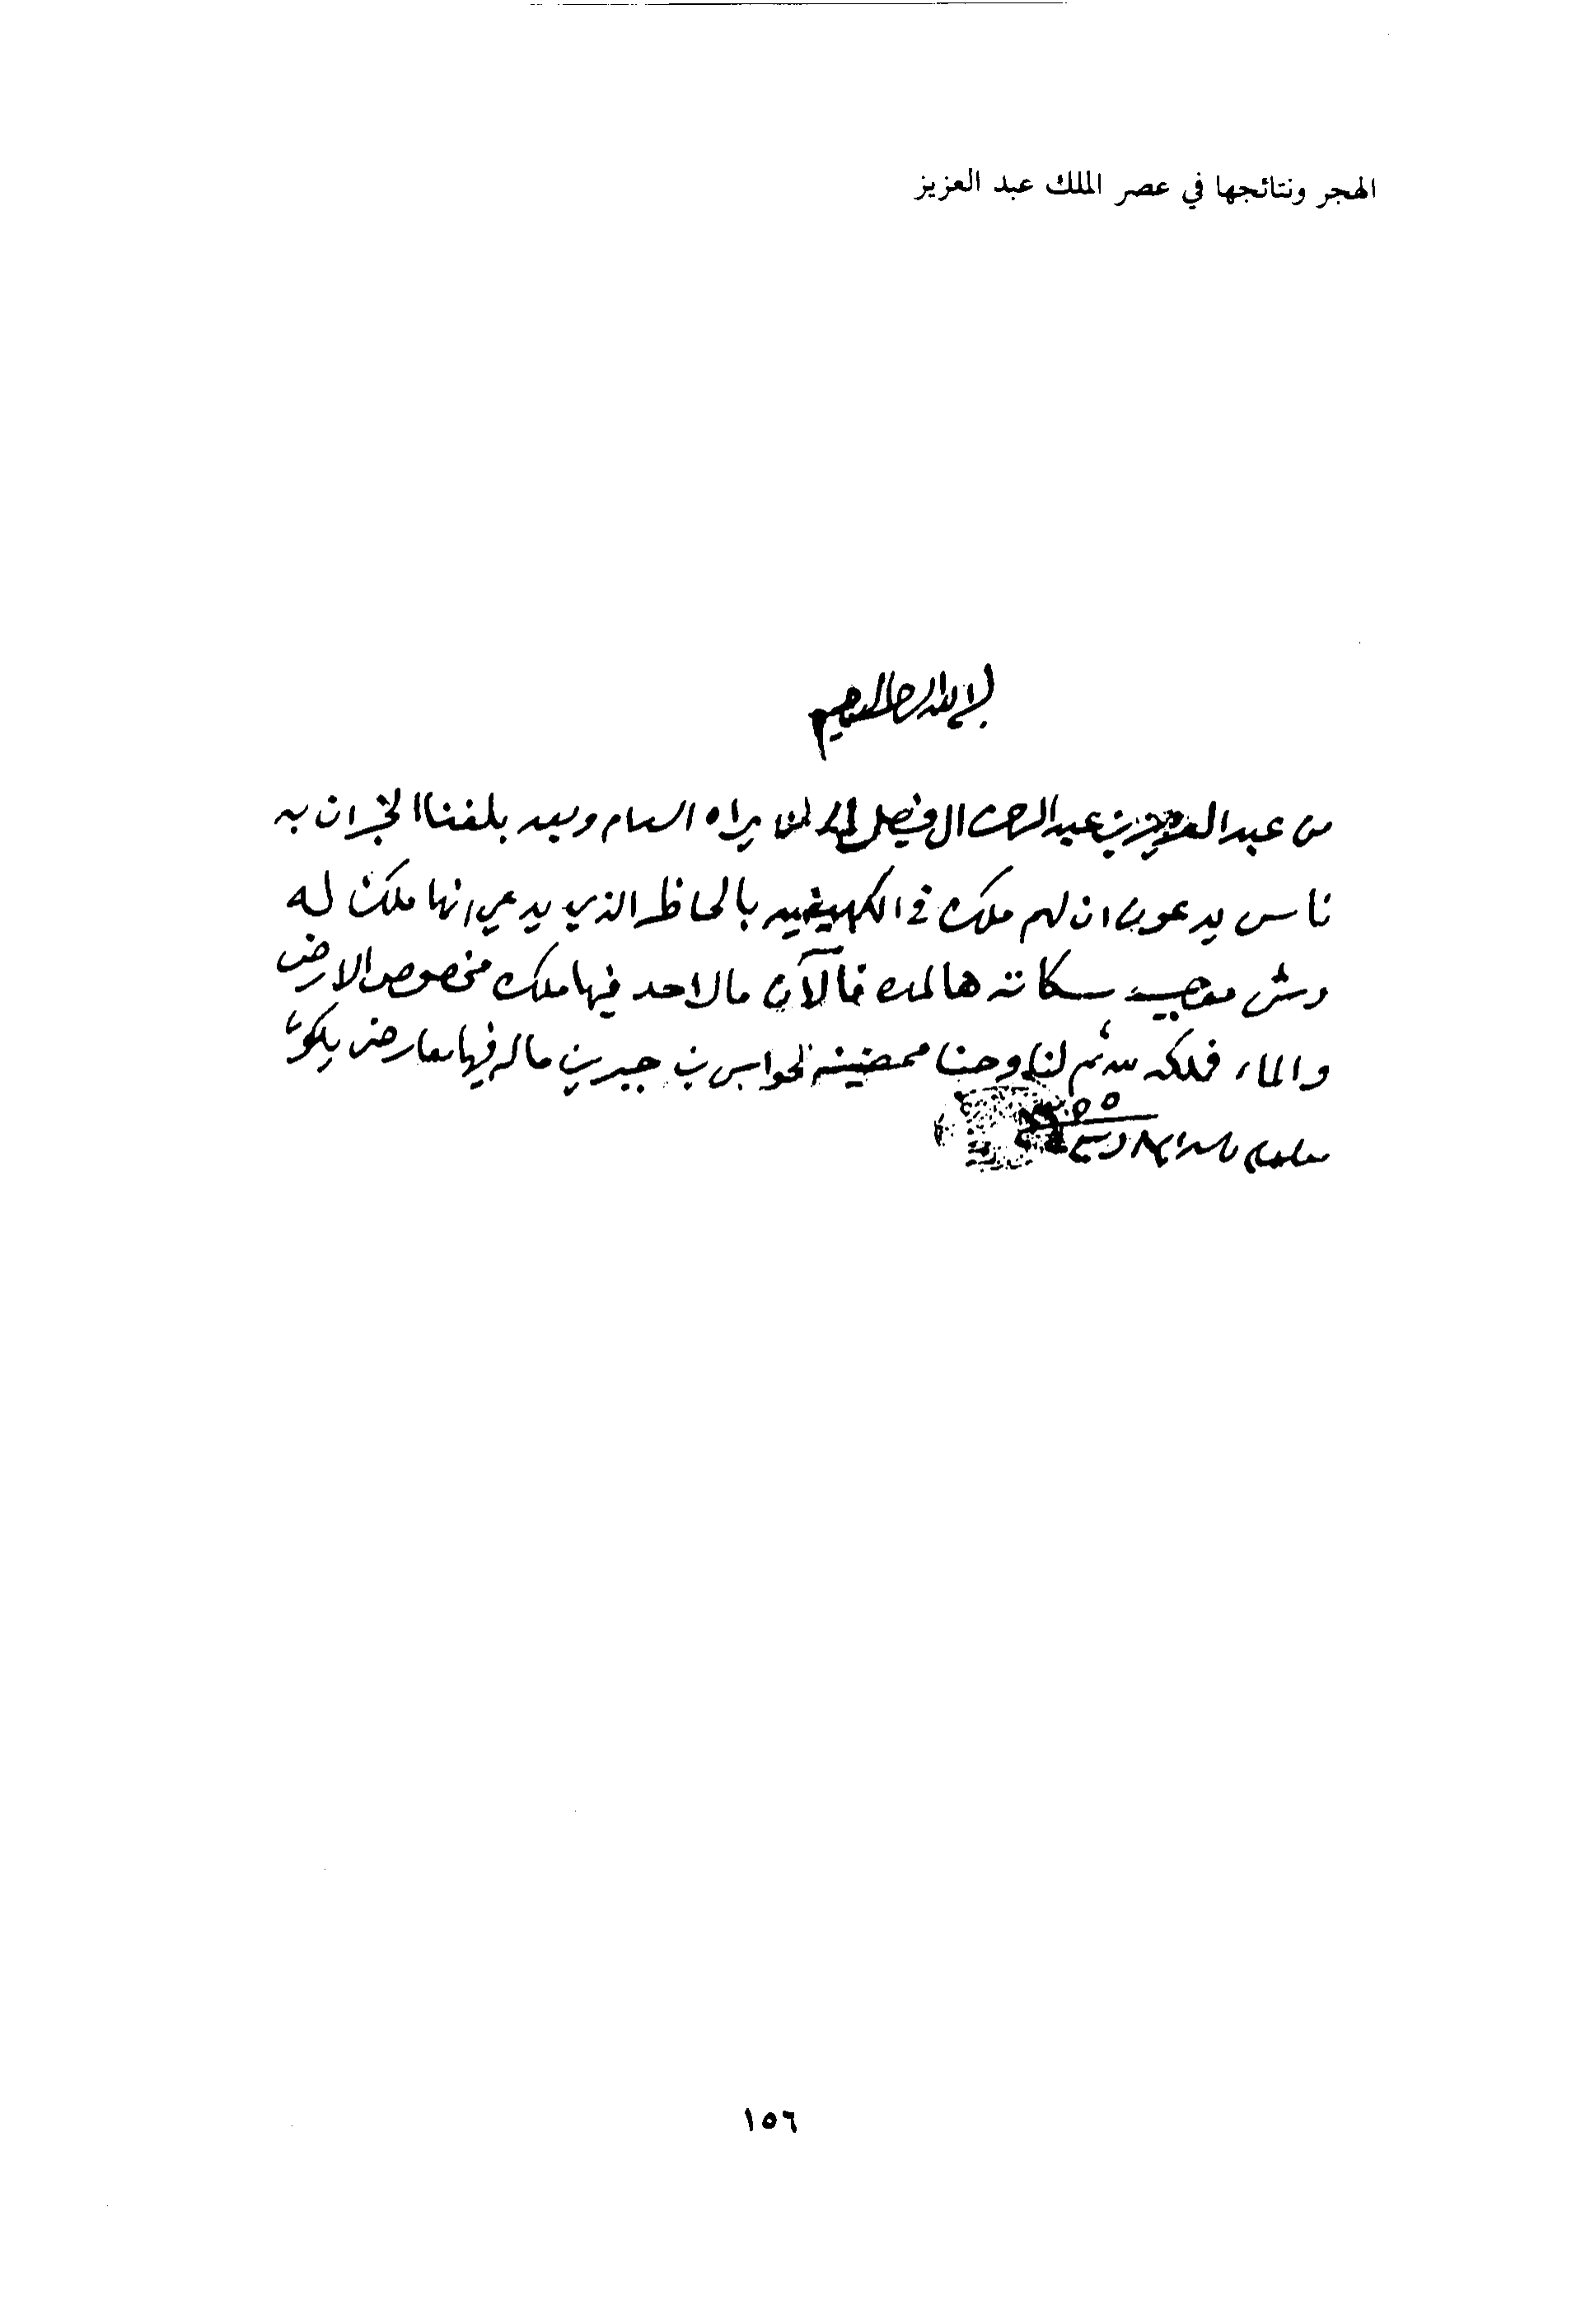 الهجر ونتائجها في عصر الملك عبد العزيز
بسم الله الرحمن الرحيم
من عبد العزيز بن عبد الرحمن ال فيصل الى من يراه السلام وبعد بلغنا الخبر ان به
ناس يدعون ان لهم ملك في الكهيفيه بالحاظر الذي يدعي انها ملك له
وش موجب سكاته هالمده فالآن ما لاحد فيها ملك مخصوص الارض
والماء فلكه لله ثم لنا وحنا ممضينه لحواس بن جبرين ماله فيها معارض يكون
معلوم
١٥٦